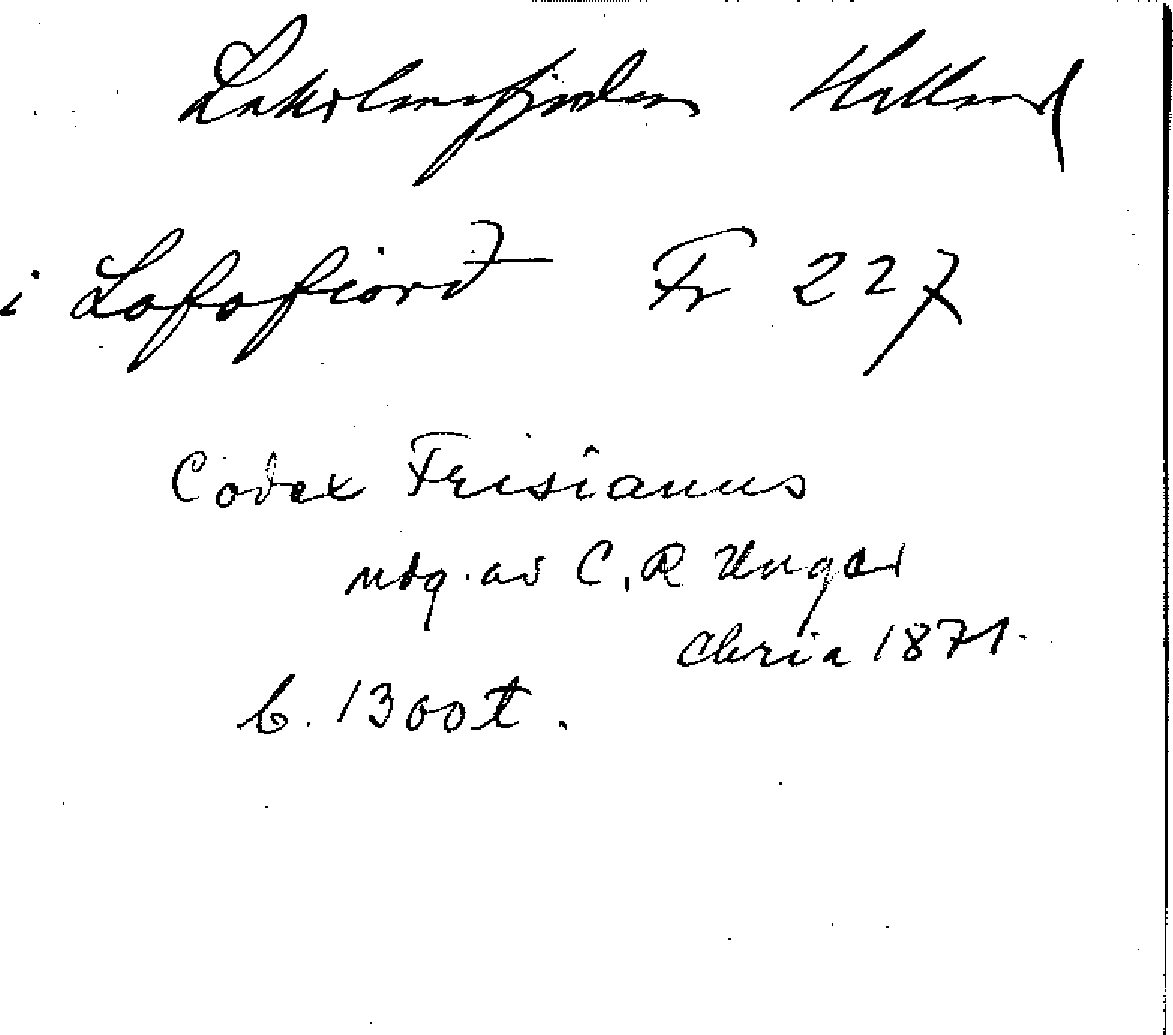 Laholmsfjorden Halland
i Lofofiorđ Fr 227
Codex Frisianus
utg. av C. R Unger
Chria 1871.
b. 1300t.